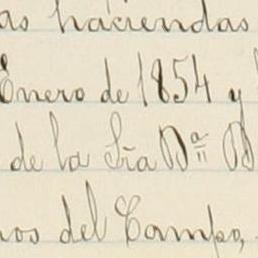 as haciendas
Enero de 1854 y
de la Sra Dª B
nos del Campo,